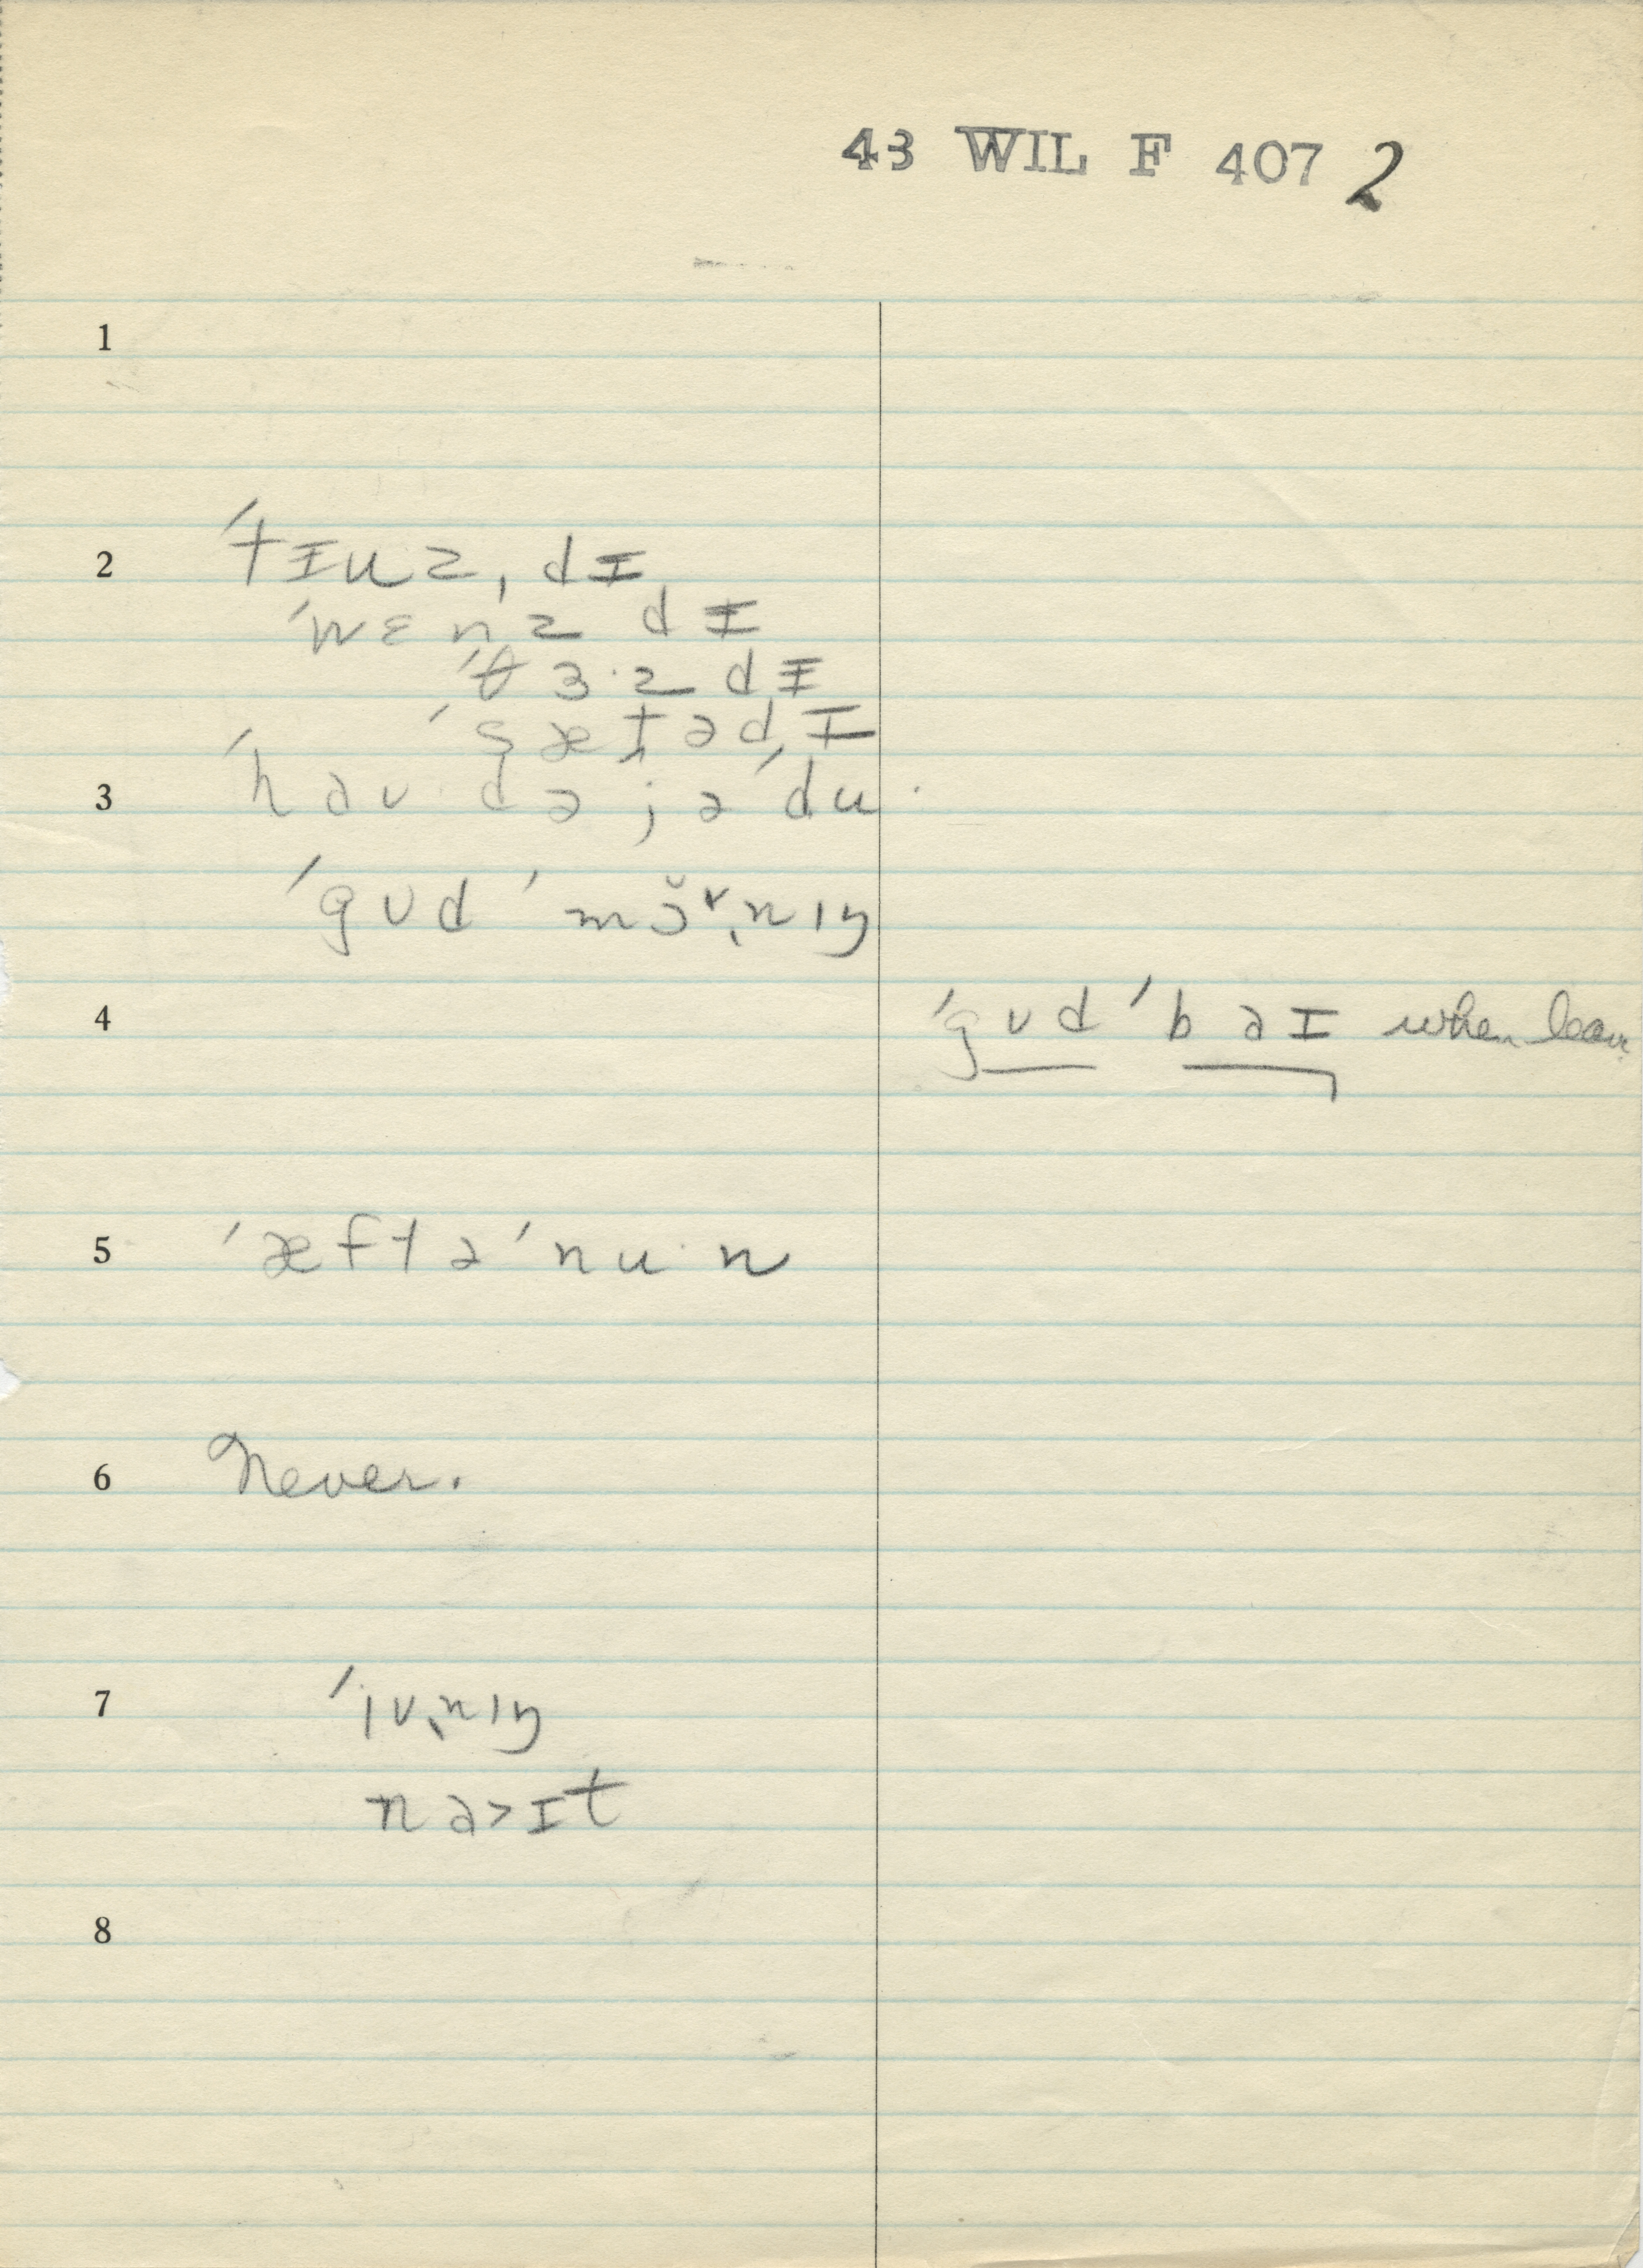 43 WIL F 407 2
1
2 ˈtɪuzˌdɪ
ˈwɛnz dɪ
ˈθɜ·z dɪ
ˈsætədɪ
3 ˈhaʊ də jə ˈdu·
ˈgʊd ˈmɔ̆ɚ̩nɪŋ
4 ˈgʊd ˈbaɪ when leav
5 ˈæftəˈnu·n
6 Never.
7 ˈiv̩nɪŋ
na>ɪt
8